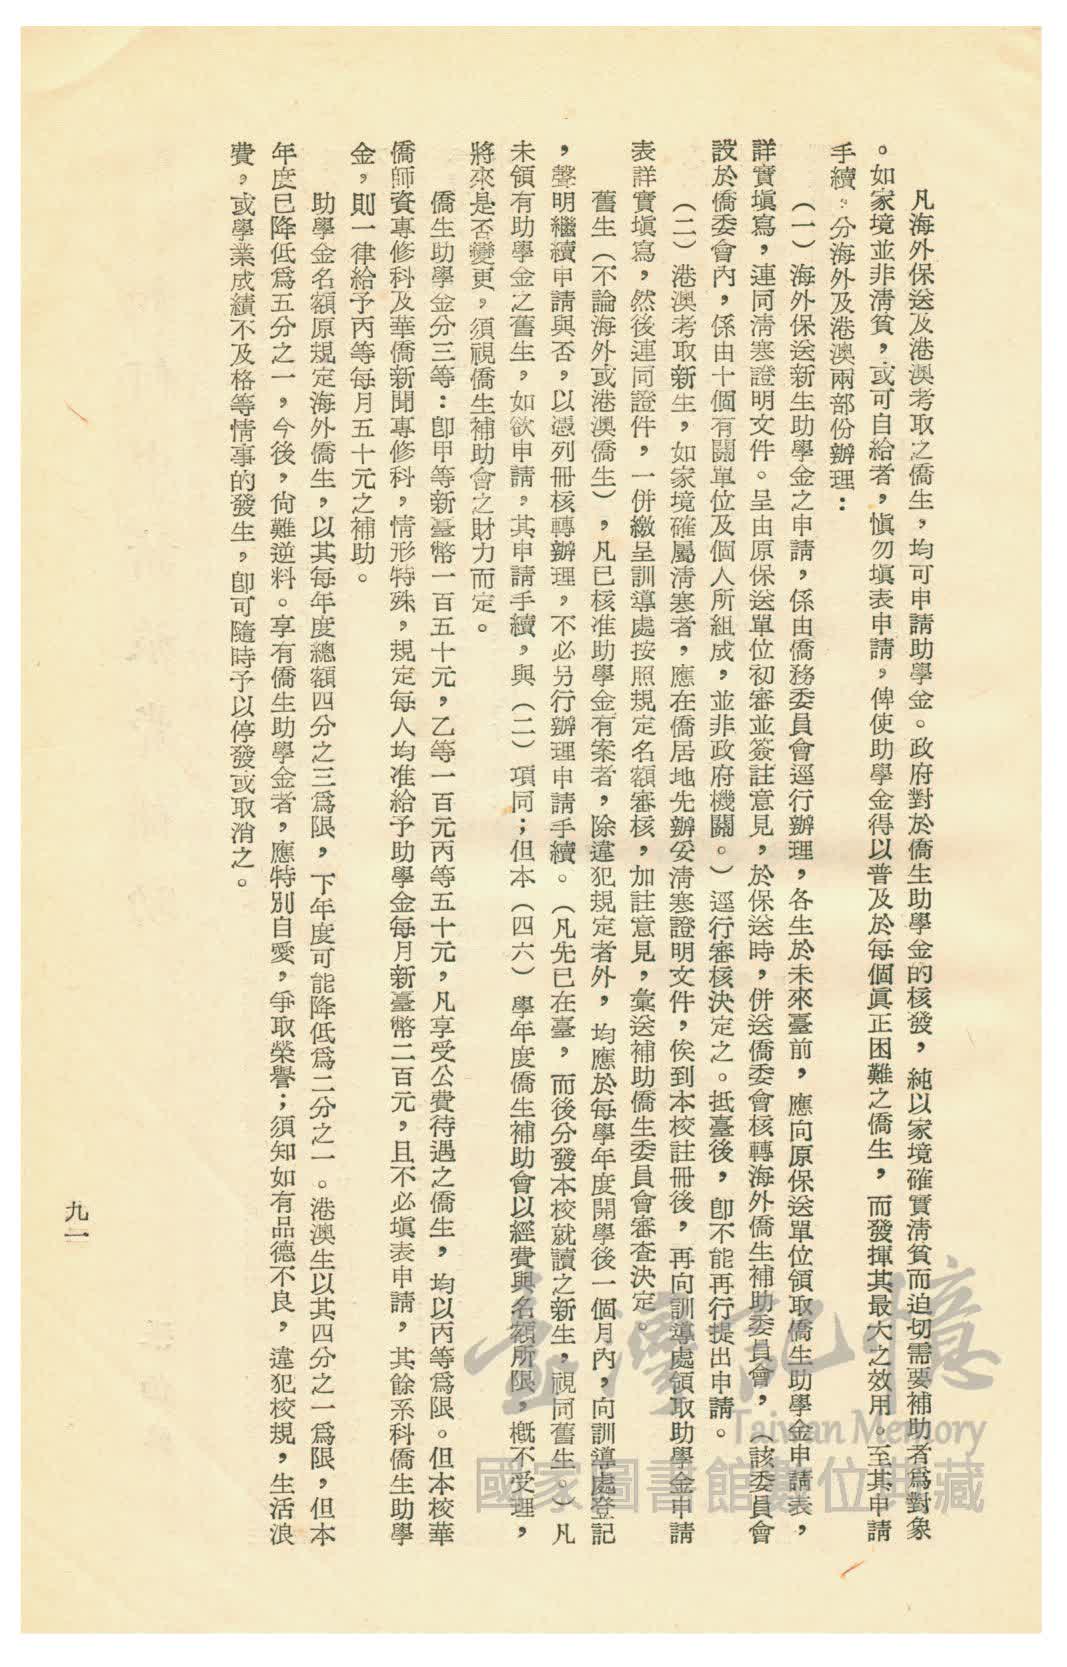 凡海外保送及港澳考取之僑生，均可申請助學金。政府對於僑生助學金的核發，純以家境確實清貧而迫切需要補助者爲對象
。如家境並非清貧，或可自給者，愼勿塡表申請，俾使助學金得以普及於每個眞正困難之僑生，而發揮其最大之效用。至其申請
手續，分海外及港澳兩部份辦理：
（一）海外保送新生助學金之申請，係由僑務委員會逕行辦理，各生於未來臺前，應向原保送單位領取僑生助學金申請表，
詳實塡寫，連同清寒證明文件。呈由原保送單位初審並簽註意見，於保送時，併送僑委會核轉海外僑生補助委員會，（該委員會
設於僑委會內，係由十個有關單位及個人所組成，並非政府機關。）逕行審核決定之。抵臺後，卽不能再行提出申請。
（二）港澳考取新生，如家境確屬清寒者，應在僑居地先辦妥清寒證明文件，俟到本校註冊後，再向訓導處領取助學金申請
表詳實塡寫，然後連同證件，一併繳呈訓導處按照規定名額審核，加註意見，彙送補助僑生委員會審查決定。
舊生（不論海外或港澳僑生），凡已核准助學金有案者，除違犯規定者外，均應於每學年度開學後一個月內，向訓導處登記
，聲明繼續申請與否，以憑列冊核轉辦理，不必另行辦理申請手續。（凡先已在臺，而後分發本校就讀之新生，視同舊生。）凡
未領有助學金之舊生，如欲申請，其申請手續，與（二）項同；但本（四六）學年度僑生補助會以經費與名額所限，槪不受理，
將來是否變更，須視僑生補助會之財力而定。
僑生助學金分三等：卽甲等新臺幣一百五十元，乙等一百元丙等五十元，凡享受公費待遇之僑生，均以丙等爲限。但本校華
僑師資專修科及華僑新聞專修科，情形特殊，規定每人均准給予助學金每月新臺幣二百元，且不必塡表申請，其餘系科僑生助學
金，則一律給予丙等每月五十元之補助。
助學金名額原規定海外僑生，以其每年度總額四分之三爲限，下年度可能降低爲二分之一。港澳生以其四分之一爲限，但本
年度已降低爲五分之一，今後，尙難逆料。享有僑生助學金者，應特別自愛，爭取榮譽；須知如有品德不良，違犯校規，生活浪
費，或學業成績不及格等情事的發生，卽可隨時予以停發或取消之。
九一
臺灣記憶
Taiwan Memory
國家圖書館數位典藏